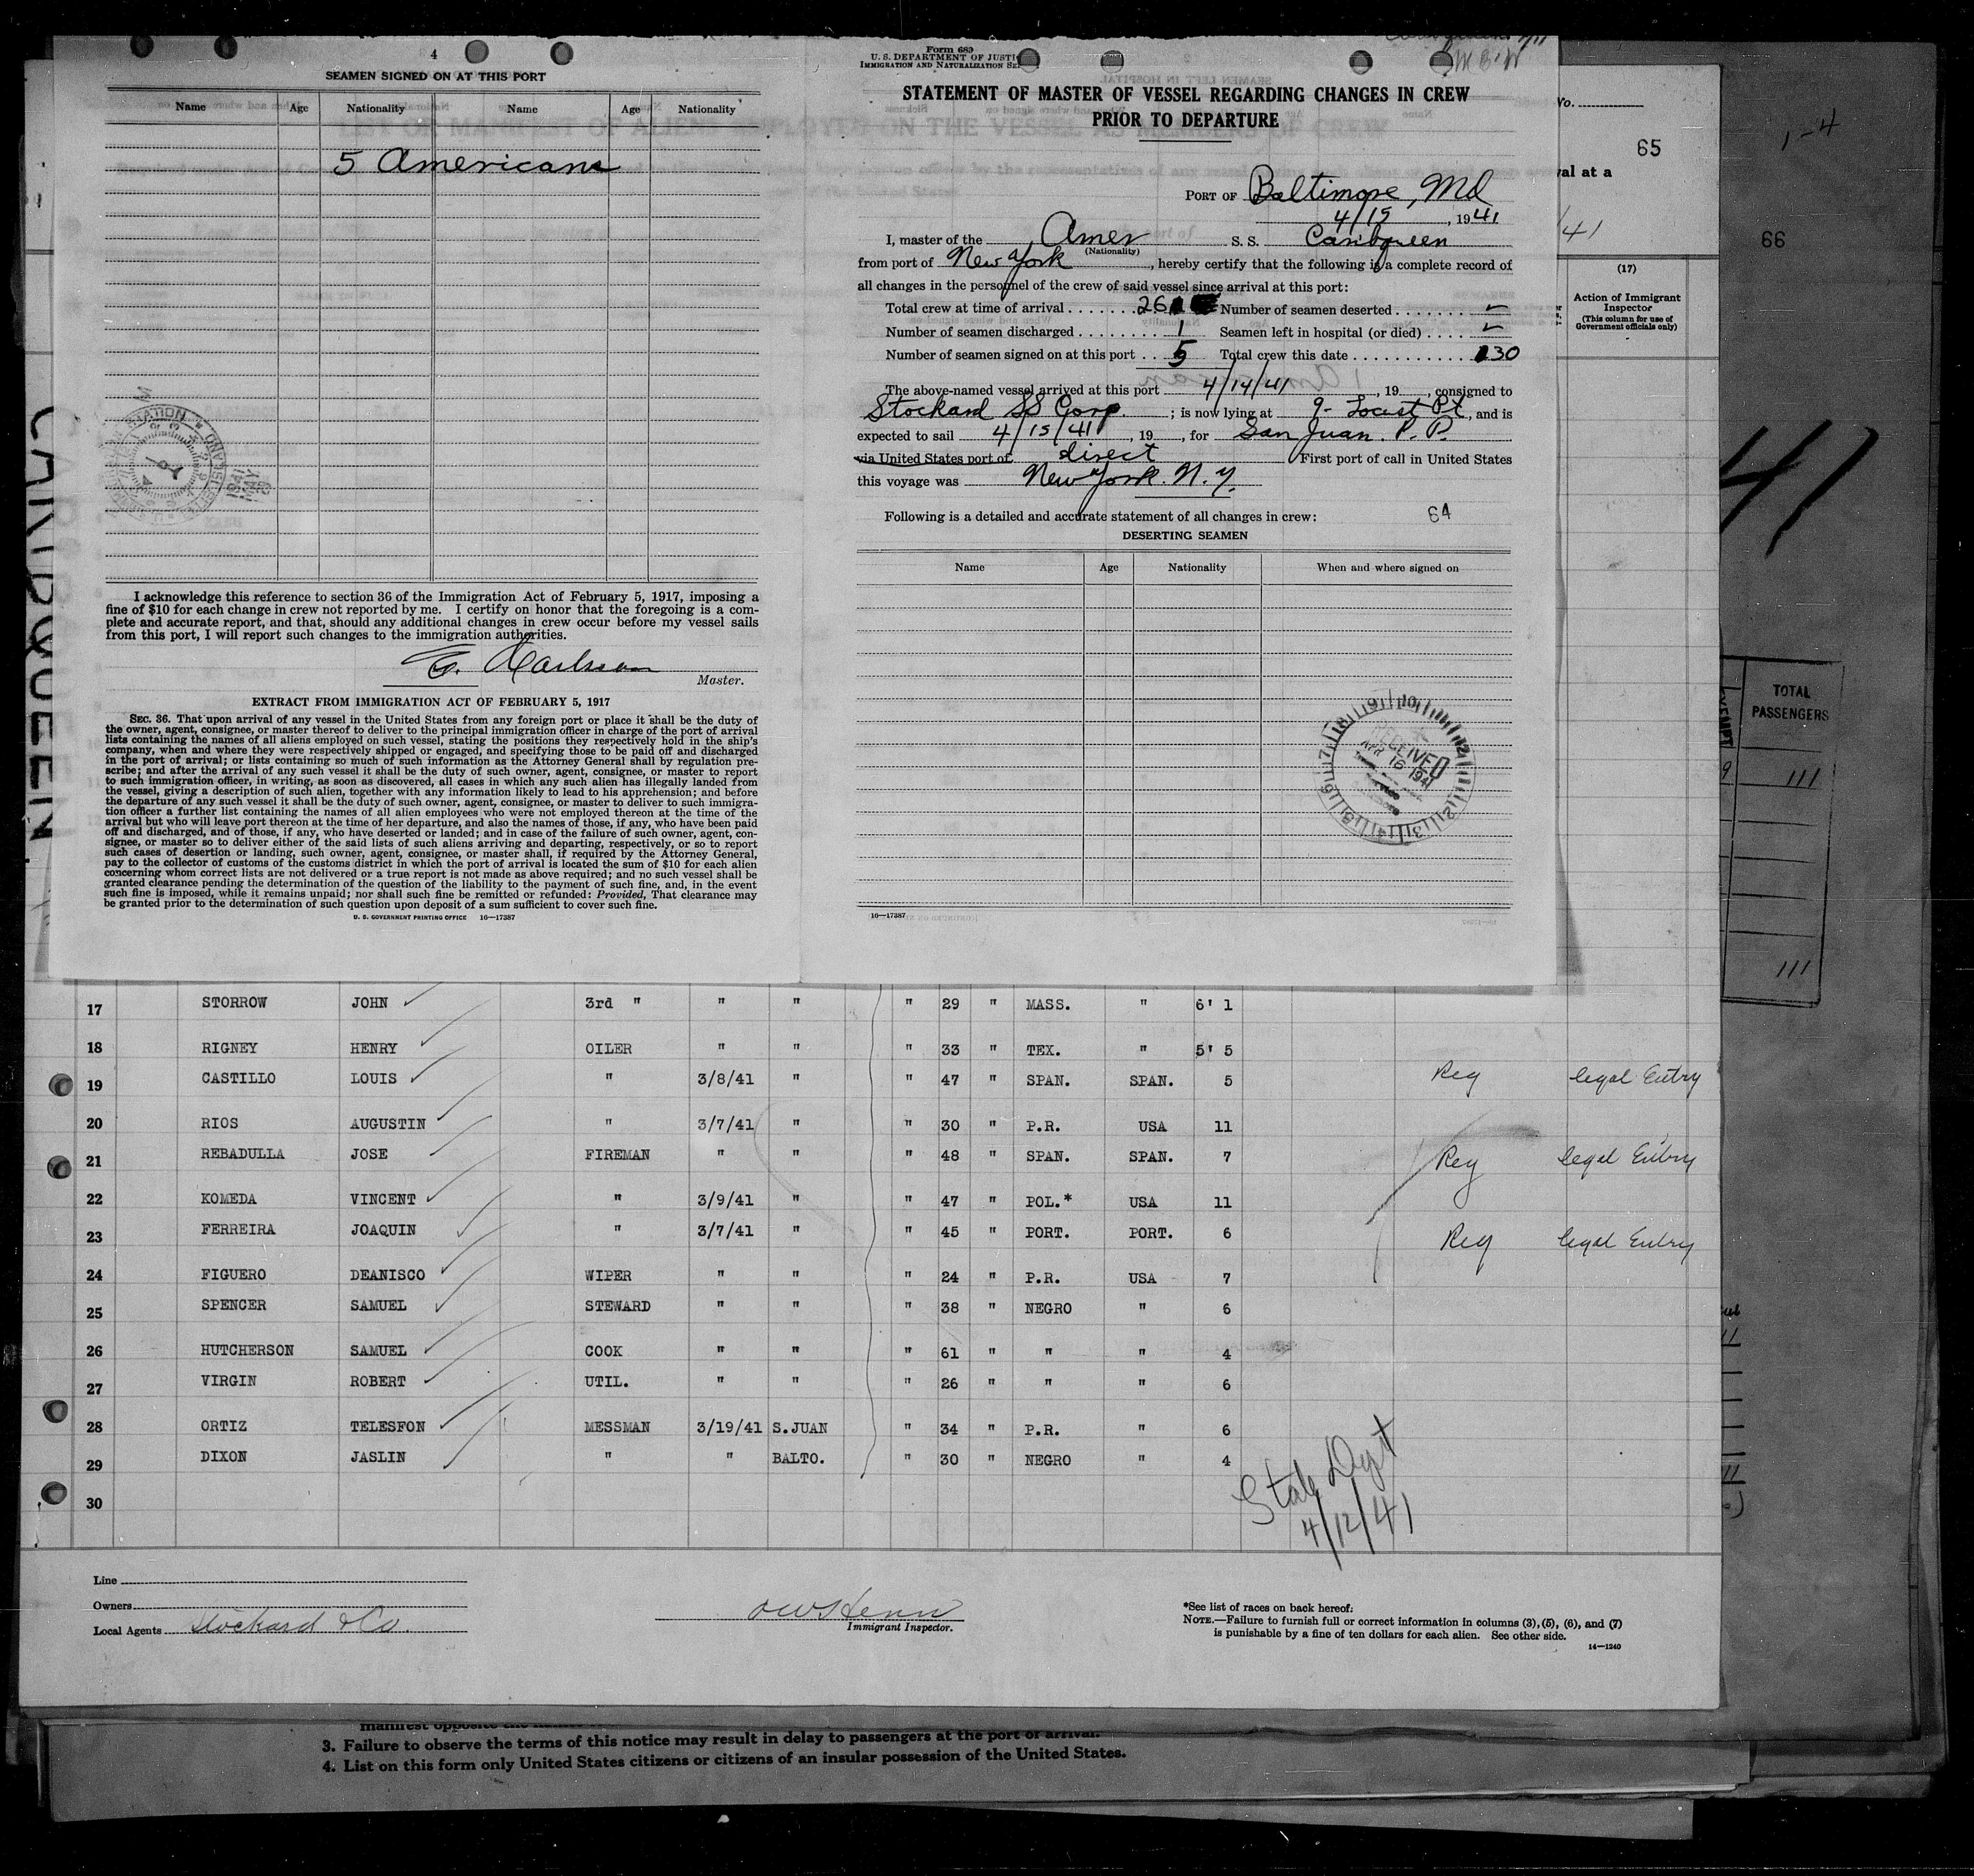 4
SEAMEN SIGNED ON AT THIS PORT
Name Age Nationality Name Age Nationality
5 Americans
I acknowledge this reference to section 36 of the Immigration Act of February 5, 1917, imposing a
fine of $10 for each change in crew not reported by me. I certify on honor that the foregoing is a com-
plete and accurate report, and that, should any additional changes in crew occur before my vessel sails
from this port, I will report such changes to the immigration authorities.
Master.
EXTRACT FROM IMMIGRATION ACT OF FEBRUARY 5, 1917
SEC. 36. That upon arrival of any vessel in the United States from any foreign port or place it shall be the duty of
the owner, agent, consignee, or master thereof to deliver to the principal immigration officer in charge of the port of arrival
lists containing the names of all aliens employed on such vessel, stating the positions they respectively hold in the ship's
company, when and where they were respectively shipped or engaged, and specifying those to be paid off and discharged
in the port of arrival; or lists containing so much of such information as the Attorney General shall by regulation pre-
scribe; and after the arrival of any such vessel it shall be the duty of such owner, agent, consignee, or master to report
to such immigration officer, in writing, as soon as discovered, all cases in which any such alien has illegally landed from
the vessel, giving a description of such alien, together with any information likely to lead to his apprehension; and before
the departure of any such vessel it shall be the duty of such owner, agent, consignee, or master to deliver to such immigra-
tion officer a further list containing the names of all alien employees who were not employed thereon at the time of the
arrival but who will leave port thereon at the time of her departure, and also the names of those, if any, who have been paid
off and discharged, and of those, if any, who have deserted or landed; and in case of the failure of such owner, agent, con-
signee, or master so to deliver either of the said lists of such aliens arriving and departing, respectively, or so to report
such cases of desertion or landing, such owner, agent, consignee, or master shall, if required by the Attorney General,
pay to the collector of customs of the customs district in which the port of arrival is located the sum of $10 for each alien
concerning whom correct lists are not delivered or a true report is not made as above required; and no such vessel shall be
granted clearance pending the determination of the question of the liability to the payment of such fine, and, in the event
such fine is imposed, while it remains unpaid; nor shall such fine be remitted or refunded: Provided, That clearance may
be granted prior to the determination of such question upon deposit of a sum sufficient to cover such fine.
U. S. GOVERNMENT PRINTING OFFICE 16—17387
Form 689
U. S. DEPARTMENT OF JUSTI
IMMIGRATION AND NATURALIZATION SE
STATEMENT OF MASTER OF VESSEL REGARDING CHANGES IN CREW
PRIOR TO DEPARTURE
PORT OF Baltimore, Md
4/15, 1941
I, master of the Amer S. S. Caribqueen
(Nationality)
from port of New York, hereby certify that the following is a complete record of
all changes in the personnel of the crew of said vessel since arrival at this port:
Total crew at time of arrival 26 Number of seamen deserted –
Number of seamen discharged 1 Seamen left in hospital (or died) –
Number of seamen signed on at this port 5 Total crew this date 30
The above-named vessel arrived at this port 4/14/41, 19, consigned to
Stockard SS Corp.; is now lying at 9- Locust Pt, and is
expected to sail 4/15/41, 19, for San Juan. P. R.
via United States port of direct First port of call in United States
this voyage was New York. N. Y.
Following is a detailed and accurate statement of all changes in crew: 64
DESERTING SEAMEN
Name Age Nationality When and where signed on
RECEIVED
APR 16 1941
16—17387
CARIBQUEEN
No.
65
val at a
41
(17)
Action of Immigrant
Inspector
(This column for use of
Government officials only)
1-4
66
41
TOTAL
PASSENGERS
9 111
111
17 STORROW JOHN 3rd " " " " 29 " MASS. " 6' 1
18 RIGNEY HENRY OILER " " " 33 " TEX. " 5' 5
19 CASTILLO LOUIS " 3/8/41 " " 47 " SPAN. SPAN. 5 Reg legal Entry
20 RIOS AUGUSTIN " 3/7/41 " " 30 " P.R. USA 11
21 REBADULLA JOSE FIREMAN " " " 48 " SPAN. SPAN. 7 Reg legal Entry
22 KOMEDA VINCENT " 3/9/41 " " 47 " POL.* USA 11
23 FERREIRA JOAQUIN " 3/7/41 " " 45 " PORT. PORT. 6 Reg legal Entry
24 FIGUERO DEANISCO WIPER " " " 24 " P.R. USA 7
25 SPENCER SAMUEL STEWARD " " " 38 " NEGRO " 6
26 HUTCHERSON SAMUEL COOK " " " 61 " " " 4
27 VIRGIN ROBERT UTIL. " " " 26 " " " 6
28 ORTIZ TELESFON MESSMAN 3/19/41 S.JUAN " 34 " P.R. " 6
29 DIXON JASLIN " " BALTO. " 30 " NEGRO " 4
30
State Dept
4/12/41
Line
Owners
Local Agents Stockard & Co.
Immigrant Inspector.
*See list of races on back hereof.
NOTE.—Failure to furnish full or correct information in columns (3), (5), (6), and (7)
is punishable by a fine of ten dollars for each alien. See other side.
14—1240
manifest opposite the
3. Failure to observe the terms of this notice may result in delay to passengers at the port of arrival.
4. List on this form only United States citizens or citizens of an insular possession of the United States.